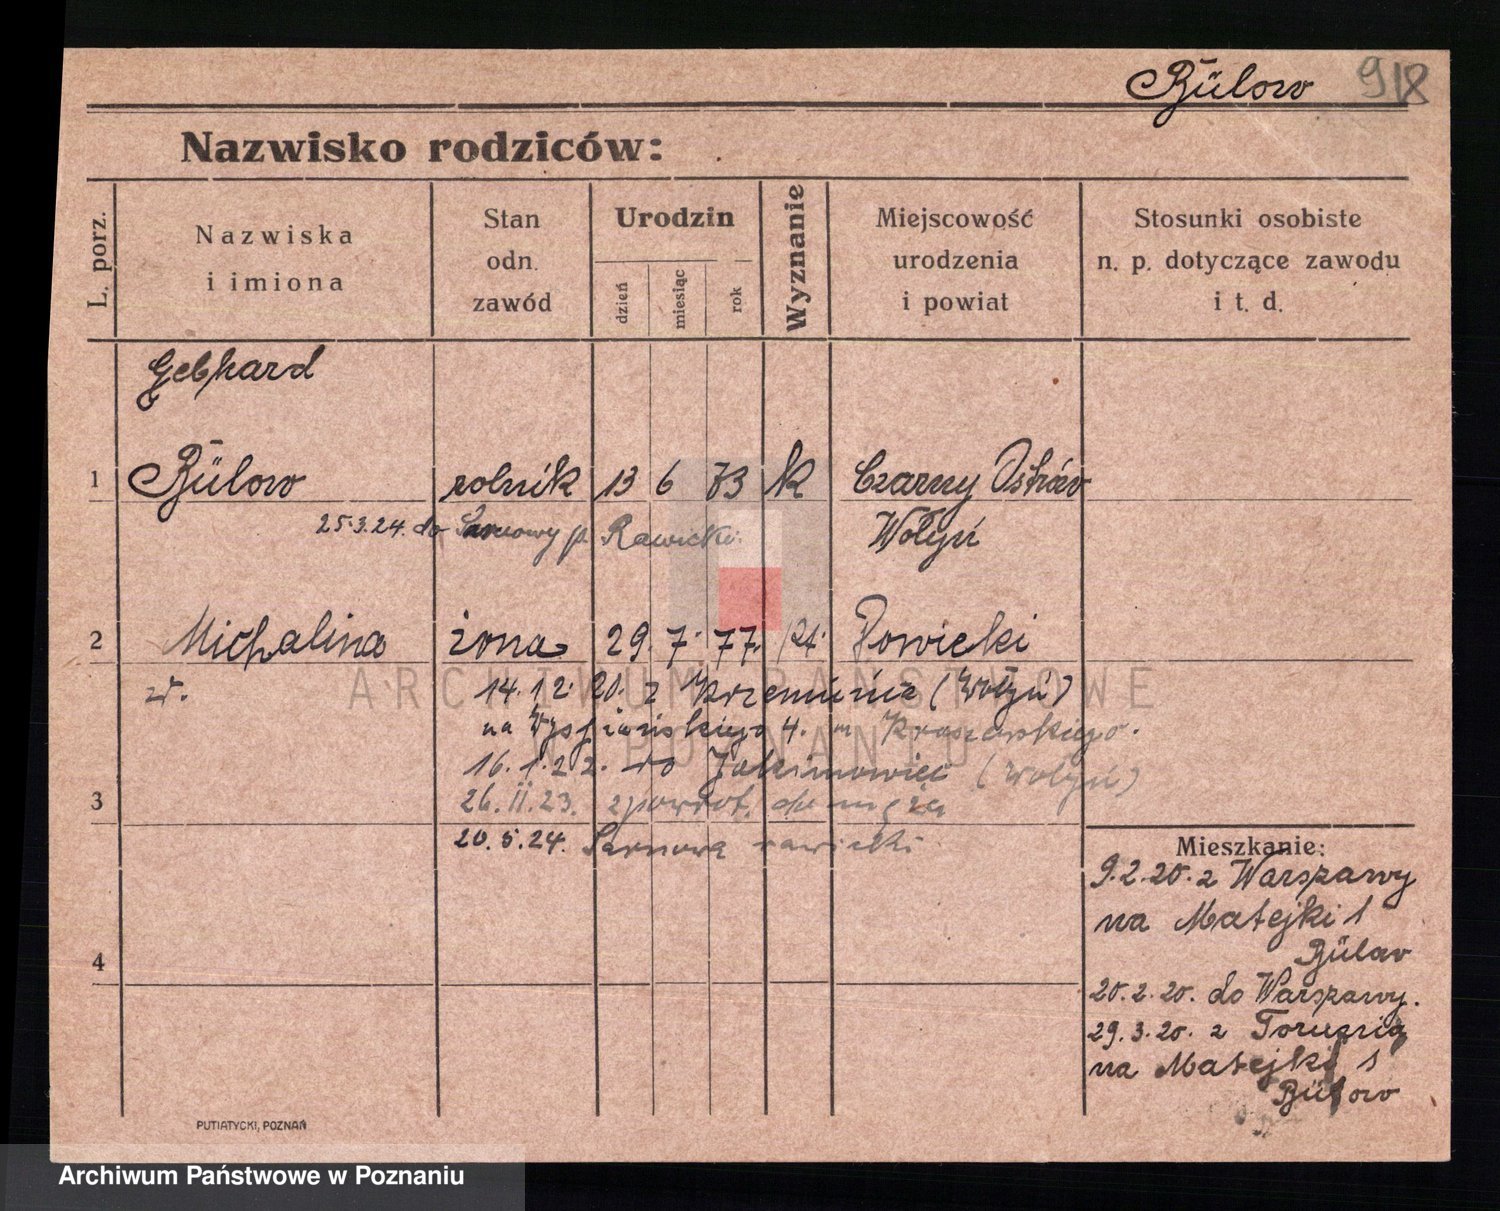 Bülow 918
Nazwisko rodziców:
L. porz.
Nazwiska
i imiona
Stan
odn.
zawód
Urodzin
dzień
miesiąc
rok
Wyznanie
Miejscowość
urodzenia
i powiat
Stosunki osobiste
n. p. dotyczące zawodu
i t. d.
Gebhard
1 Bülow rolnik 13 6 73 k Czarny Ostrów
25.3.24. do Sarnowy p. Rawicki.
Wołyń
2 Michalina żona 29. 7. 77. kt.
14.12.20. z Krzemieńca (Wołyń)
na Wyspiańskiego 4. m Kraszewskiego.
16.1.22. do (Wołyń)
3 26.II.23. zpowrot. do męża
20.5.24. Sarnowa rawicki
4
Mieszkanie:
9.2.20. z Warszawy
na Matejki 1
Bülow
20.2.20. do Warszawy.
29.3.20. z Torunia
na Matejki 1
Bülow
PUTIATYCKI, POZNAŃ
ARCHIWUM PAŃSTWOWE
W POZNANIU
Archiwum Państwowe w Poznaniu